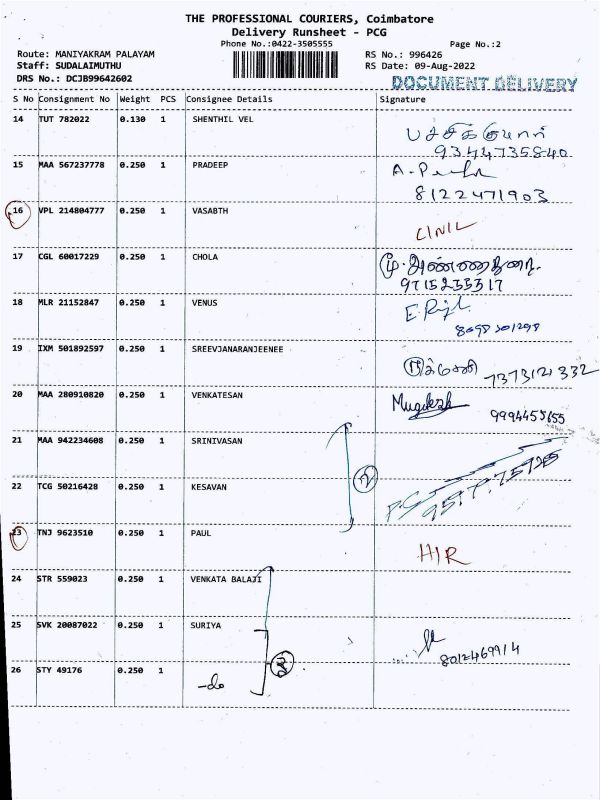 THE PROFESSIONAL COURIERS, Coimbatore
Delivery Runsheet - PCG
Phone No.:0422-3505555
Page No.:2
Route: MANIYAKRAM PALAYAM
RS No.: 996426
Staff: SUDALAIMUTHU
RS Date: 09-Aug-2022
DRS No.: DCJB99642602
DOCUMENT DELIVERY
S No Consignment No Weight PCS Consignee Details Signature
14 TUT 782022 0.130 1 SHENTHIL VEL
9344735840
15 MAA 567237778 0.250 1 PRADEEP
8122471903
16 VPL 214804777 0.250 1 VASABTH
17 CGL 60017229 0.250 1 CHOLA
9715235317
18 MLR 21152847 0.250 1 VENUS
19 IXM 501892597 0.250 1 SREEVJANARANJEENEE
7373121332
20 MAA 280910820 0.250 1 VENKATESAN
Mugilesh
9994455655
21 MAA 942234608 0.250 1 SRINIVASAN
22 TCG 50216428 0.250 1 KESAVAN
2
23 TNJ 9623510 0.250 1 PAUL
H/R
24 STR 559023 0.250 1 VENKATA BALAJI
25 SVK 20087022 0.250 1 SURIYA
8012469914
26 STY 49176 0.250 1
-do
3